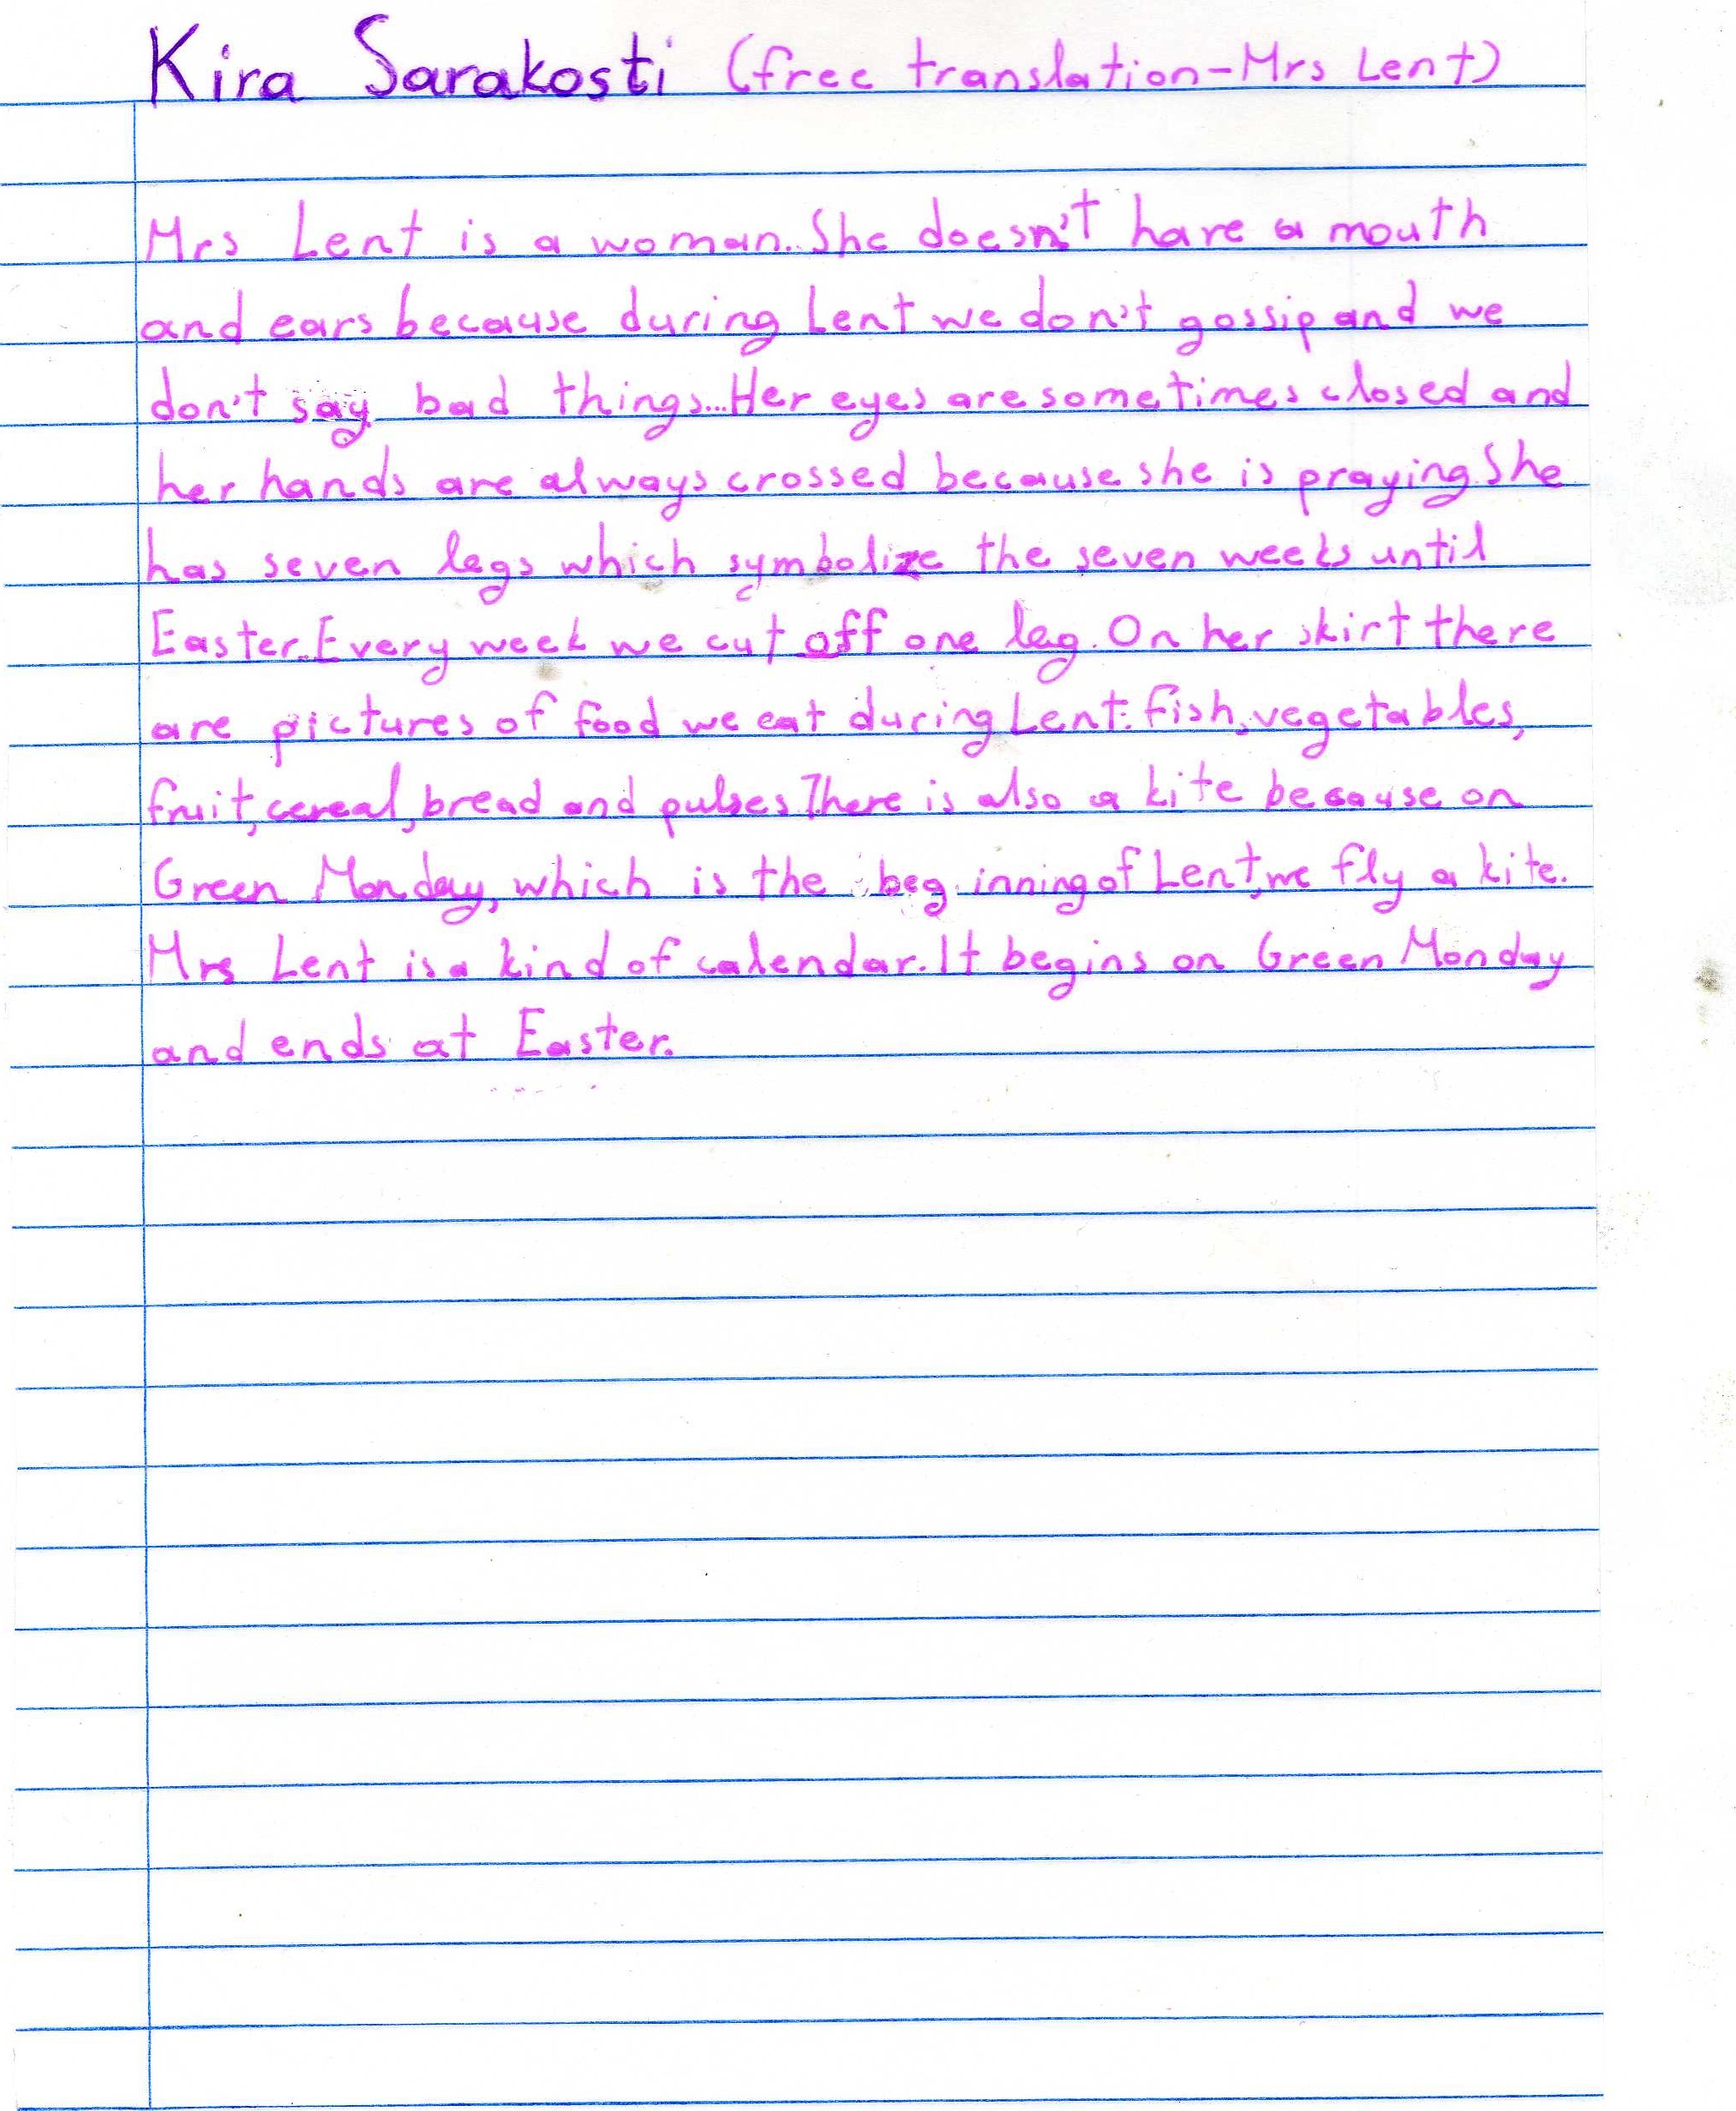 Kira Sarakosti (free translation-Mrs Lent)
Mrs Lent is a woman. She doesn't have a mouth
and ears because during Lent we don't gossip and we
don't say bad things...Her eyes are sometimes closed and
her hands are always crossed because she is praying. She
has seven legs which symbolize the seven weeks until
Easter. Every week we cut off one leg. On her skirt there
are pictures of food we eat during Lent: fish, vegetables,
fruit, cereal, bread and pulses. There is also a kite because on
Green Monday, which is the beginning of Lent, we fly a kite.
Mrs Lent is a kind of calendar. It begins on Green Monday
and ends at Easter.